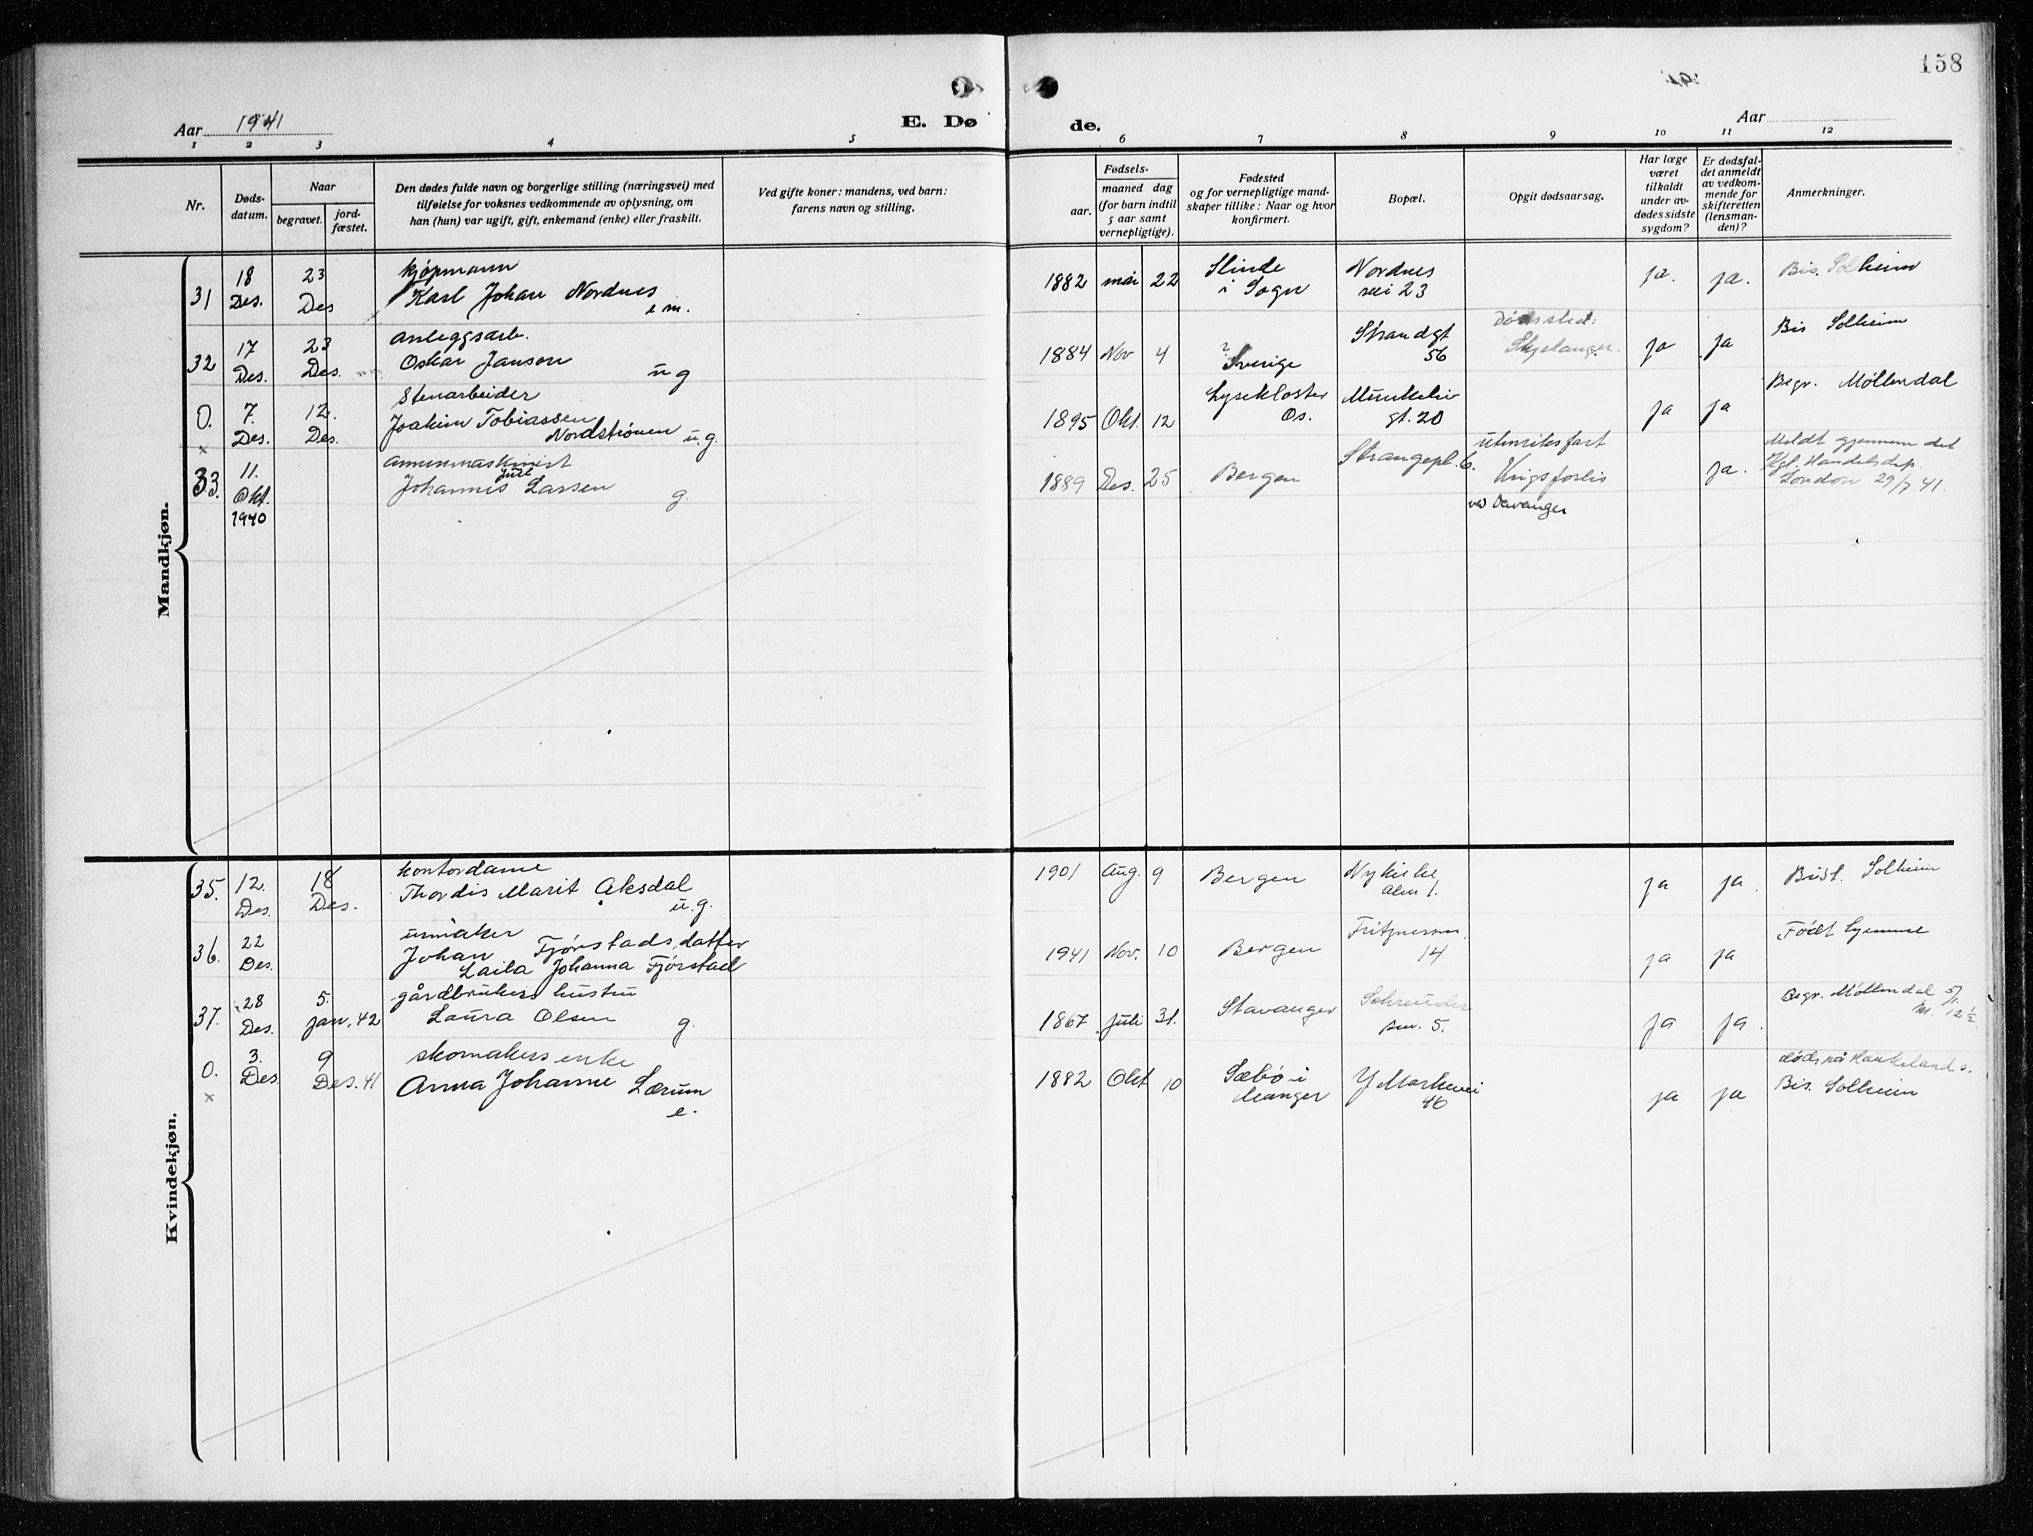 158
Aar 1941
E. Dø de.
Aar
1 2 3 4 5 6 7 8 9 10 11 12
Nr.
Døds-
datum.
Naar
begravet.
jord-
fæstet.
Den dødes fulde navn og borgerlige stilling (næringsvei) med
tilføielse for voksnes vedkommende av oplysning, om
han (hun) var ugift, gift, enkemand (enke) eller fraskilt.
Ved gifte koner: mandens, ved barn:
farens navn og stilling.
Fødsels-
aar.
maaned dag
(for barn indtil
5 aar samt
vernepligtige).
Fødested
og for vernepligtige mand-
skaper tillike: Naar og hvor
konfirmert.
Bopæl.
Opgit dødsaarsag.
Har læge
været
tilkaldt
under av-
dødes sidste
sygdom?
Er dødsfal-
det anmeldt
av vedkom-
mende for
skifteretten
(lensman-
den)?
Anmerkninger.
Mandkjøn.
31 18 Des. 23 Des
Kjøpmann
Karl Johan Nordnes
e.m.
1882 mai 22
Slinde
i Sogn
Nordnes
vei 23
ja. ja.
Bis. Solheim
32 17 Des. 23 Des.
anleggsarb.
Oskar Janson
ug
1884 Nov 4
?
Sverige
Strandgt
56
Dødssted:
Skjelanger.
ja ja
Bis Solheim
0. x 7. Des. 12. Des.
Stenarbeider
Joakim Tobiassen
Nordströnen u.g.
1895 Okt. 12
Lysekloster
Os.
Munkeliv
gt. 20
ja ja
Begr. Møllendal
33. 11. Okt. 1940
Juul
Johannes Larsen
g.
1889 Des. 25
Bergen
Strangepl. 6.
utenriksfart
Krigsforlis
ved
ja.
Meldt gjennem det
Kgl. Handelsdep.
London 29/7.41.
Kvindekjøn.
35. 12. Des. 18 Des.
kontordame
Thordis Marit Aksdal
u.g.
1901 Aug. 9
Bergen
Nykirke
alm 1.
ja ja.
Bisl. Solheim
36. 22 Des.
urmaker
Johan Fjörstads datter
Laila Johanna Fjörstad
1941 Nov. 10
Bergen
14
ja ja
Født hjemme
37. 28 Des. 5. jan. 42
gårdbrukers hustru
Laura Olsen
g.
1867 Juli 31.
Stavanger
5.
ja ja.
Begr. Møllendal 5/1.
kl. 12½
0. x 3. Des. 9 Des. 41
skomakers enke
Anna Johanne Lærum
e.
1882 Okt 10
Sæbö i
Manger
Y Markevei
46
ja ja
död på Haukeland s.
Bis. Solheim